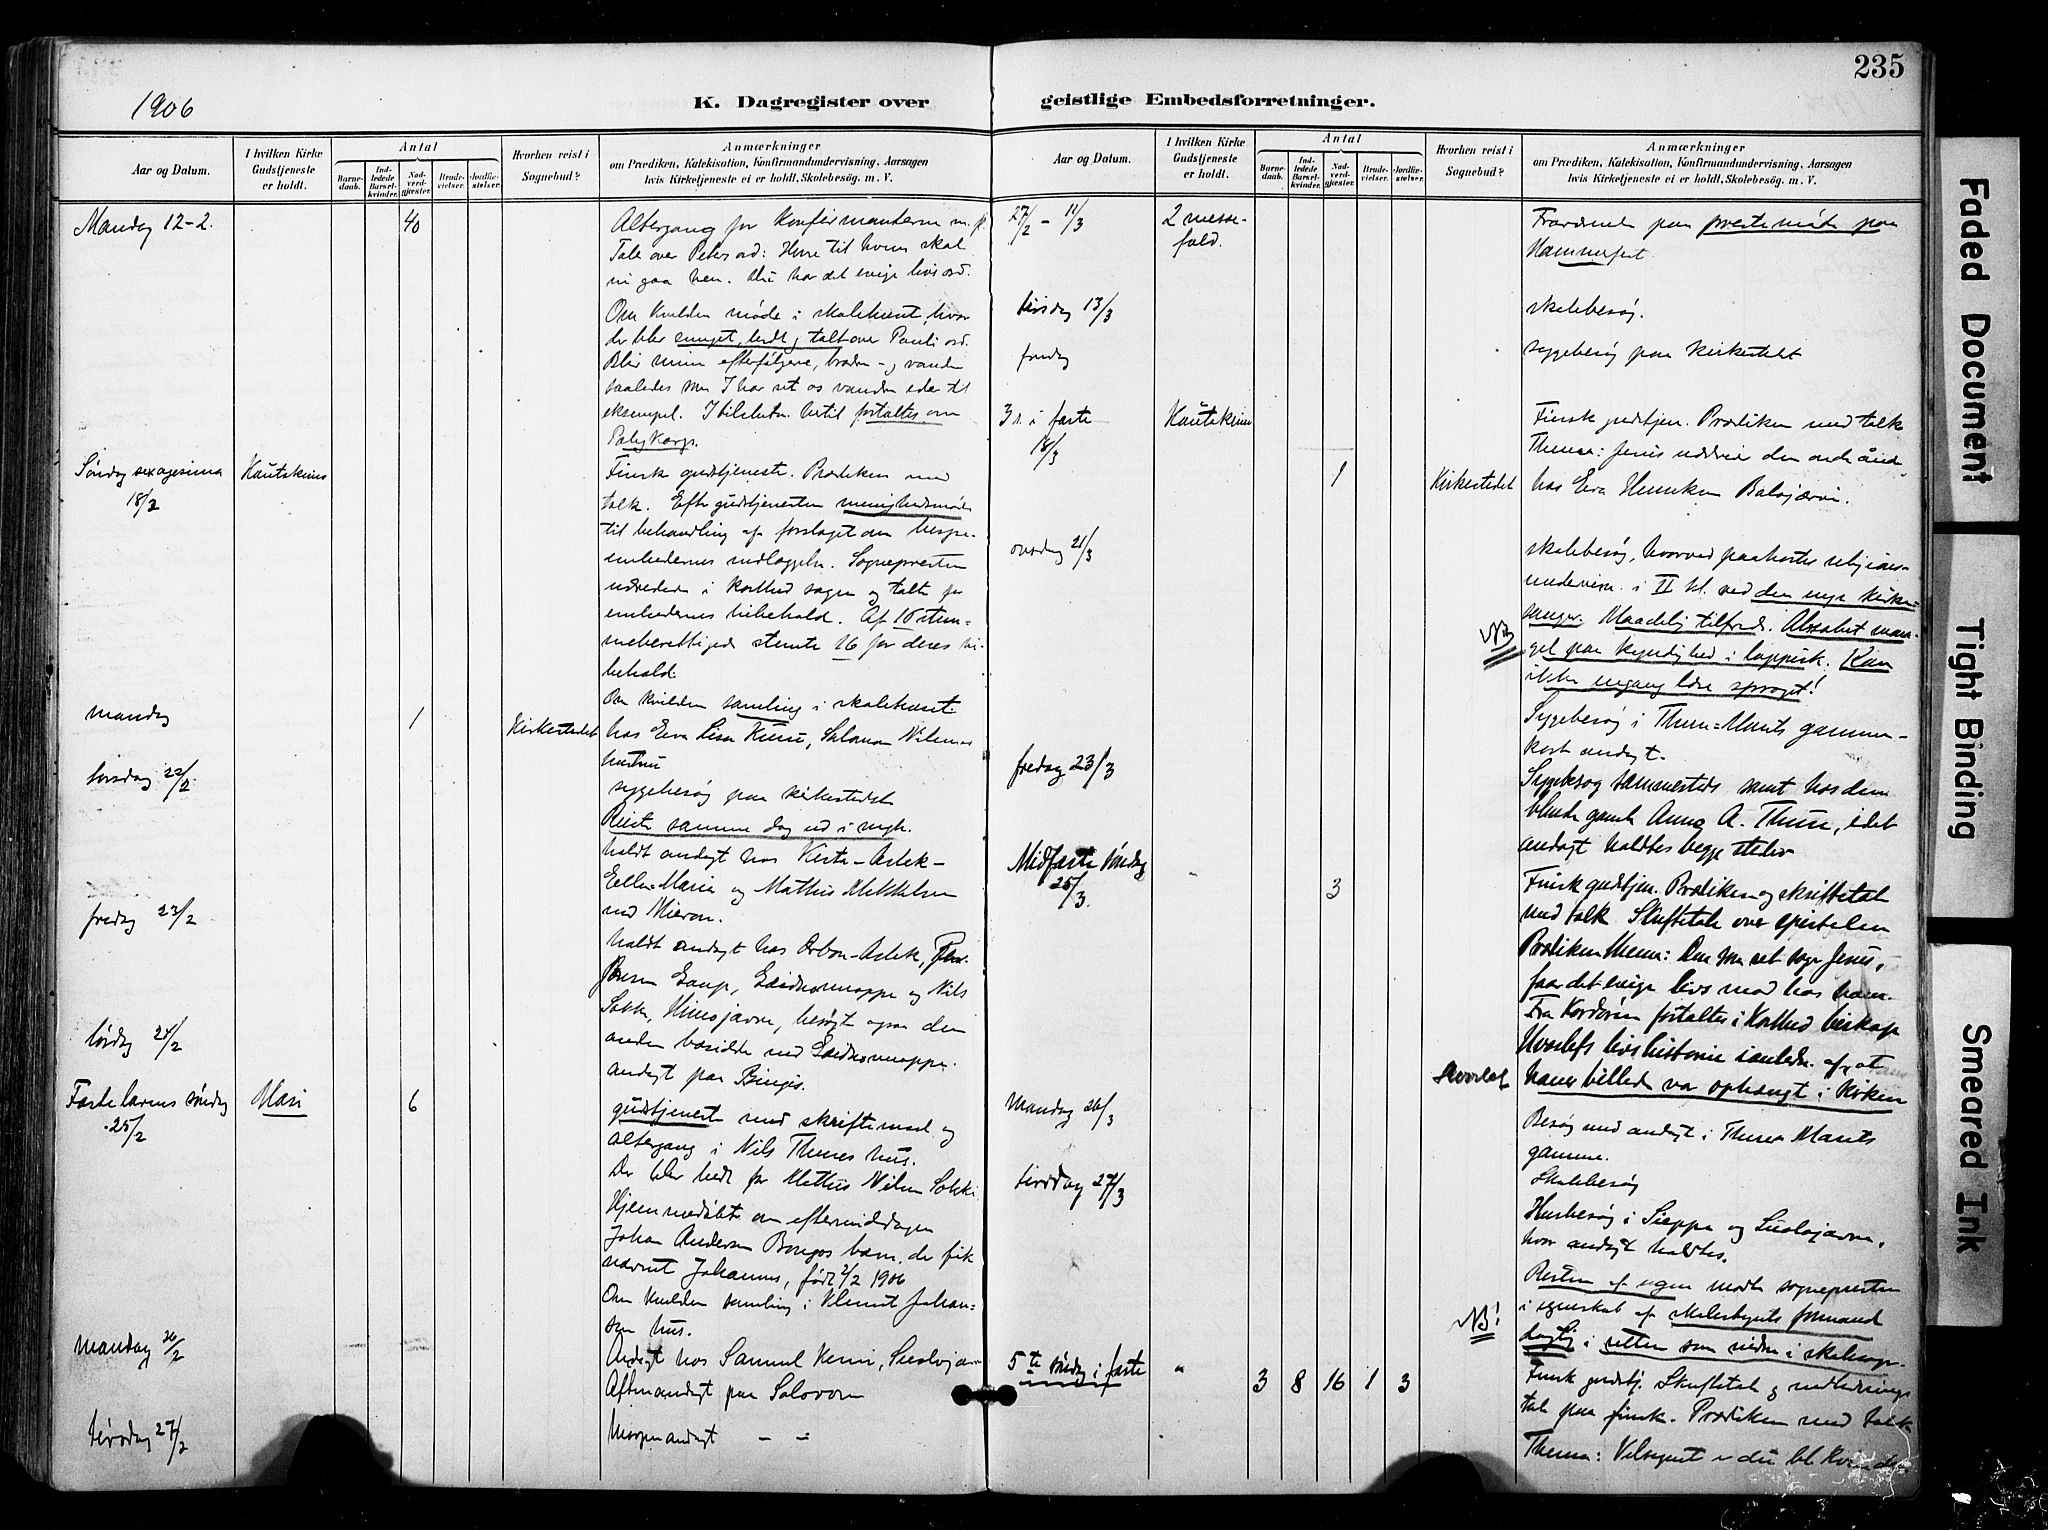 235
1906
K. Dagregister over geistlige Embedsforretninger.
Aar og Datum.
I hvilken Kirke Gudstjeneste er holdt.
Antal
Barnedaab.
Indledede Barselkvinder.
Nadverdgjester.
Brudevielser.
Jordfæstelser.
Hvorhen reist i Sognebud?
Anmærkninger
om Prædiken, Katekisation, Konfirmandundervisning, Aarsagen
hvis Kirketjeneste ei er holdt, Skolebesög. m. V.
Mandag 12-2.
40
Altergang for Konfirmanterne m. fl.
Tale over Peters ord: Herre til hvem skal
vi gaa hen. Du har det evige livs ord.
Om kvelden møde i skolehuset, hvor
der blev sunget, bedt og talt over Pauli ord.
Bliv mine efterfølgere, brødre - og
saaledes som I har set os vandre eder til
eksempel. fortaltes om
Polykarp.
Søndag sexagesima
18/2
Kautokeino
Finsk gudstjeneste. Prædiken med
tolk. Efter gudstjenesten menighedsmøde
til behandling af forslaget om
embedernes nedlæggelse. Sognepresten
i korthed sagen og talte for
embedernes bibehold. Af 16 stem-
meberettigede stemte 16 for deres bi-
behold.
Om kvelden samling i skolehuset.
mandag
1
Kirkestedet
hos Eva Lisa Salomon Nilsens
hustru
torsdag 22/2
sygebesøg paa kirkestedet
Reiste samme dag ud i
holdt andagt hos Aslak-
Ellen-Maria og Mathis Mikkelsen
ved Mieron.
fredag 23/2
holdt andagt hos Aslak,
Gaup, og Nils
besøgt ogsaa den
anden
lørdag 24/2
andagt paa
Fastelavens søndag
25/2
Masi
6
gudstjeneste med skriftemaal og
altergang i Nils Thures hus.
Der blev bedt for Mathis Nilsen
Hjemmedøbt om eftermiddagen
Johan Andersen barn, der fik
navnet Johannes, født 2/2 1906
Om kvelden samling i Klemet Johan-
sen hus.
mandag 26/2
Andagt hos Samuel
Aftenandagt paa
tirsdag 27/2
Morgenandagt — " —
Aar og Datum.
I hvilken Kirke Gudstjeneste er holdt.
Antal
Barnedaab.
Indledede Barselkvinder.
Nadverdgjester.
Brudevielser.
Jordfæstelser.
Hvorhen reist i Sognebud?
Anmærkninger
om Prædiken, Katekisation, Konfirmandundervisning, Aarsagen
hvis Kirketjeneste ei er holdt, Skolebesög. m. V.
27/2 - 11/3
2 messe-
fald.
Fraværende paa prestemøde paa
Hammerfest
tirsdag 13/3
skolebesøg.
fredag
sygebesøg paa kirkestedet
3 s. i faste
18/3
Kautokeino
Finsk gudstjen. Prædiken med tolk
Thema: Jesus uddriver den onde ånd
1
Kirkestedet
hos Eva Henriksen
onsdag 21/3
skolebesøg, hvorved paahørtes religions-
undervisn. i II kl. ved den nye kirke-
sanger. Maadelig tilfreds. Absolut man-
gel paa kyndighed i lappisk. Kan
ikke engang læse sproget!
NB
Sygebesøg i Thure-Marits gamme-
kort andagt.
fredag 23/3
Sygebesøg sammesteds samt hos den
blinde gamle Anna A. Thure, idet
andagt holdtes begge steder
Midfaste søndag
25/3.
"
3
Finsk gudstjen. Prædiken og skriftetale
med tolk. Skriftetale over epistelen
Prædiken thema: Den som ret søge Jesus,
faar det evige livs mad hos ham.
Fra Kordøren fortaltes i korthed biskop
Hvoslefs livshistorie i anledn. af, at
hans billede var ophængt i kirken
Hvoslef
mandag 26/3
Besøg med andagt i Thure Marits
gamme.
tirsdag 27/3
Skolebesøg
Husbesøg i Sieppe og
hvor andagt holdtes.
Resten af ugen mødte sognepresten
i egenskab af skolestyrets formand
daglig i retten som vidne i skolesag.
NB!
5te søndag i faste
"
3
8
16
1
3
Finsk gudstj. Skriftetale og nedlednings
tale paa finsk. Prædiken med tolk
Thema: Velsignet er du bl. kvinder
Faded Document
Tight Binding
Smeared Ink